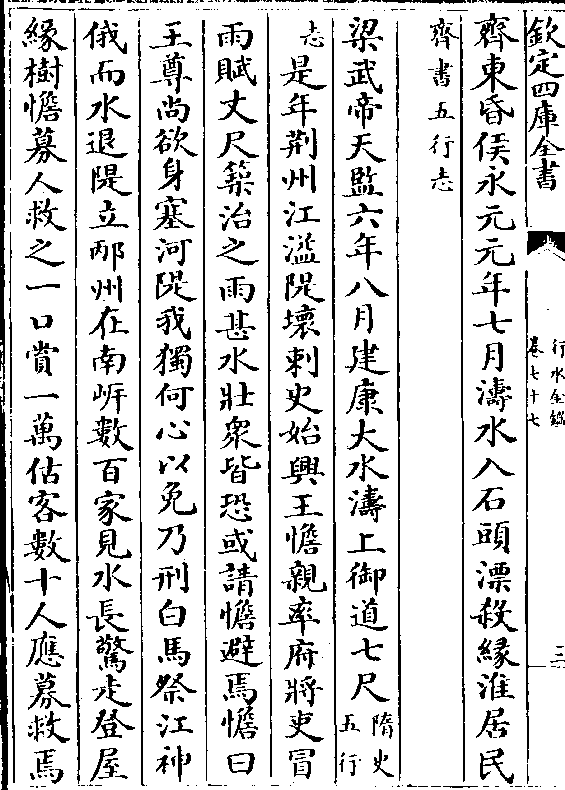 欽定四庫全書
行水金鑑
卷七十七
三
齊東昏侯永元元年七月濤水入石頭漂殺緣淮居民
齊書五行志
梁武帝天監六年八月建康大水濤上御道七尺隋史五行
志是年荆州江溢隄壞刺史始興王憺親率府將吏冒
雨賦丈尺築治之雨甚水壯衆皆恐或請憺避焉憺曰
王尊尚欲身塞河隄我獨何心以免乃刑白馬祭江神
俄而水退隄立邴州在南岍數百家見水長驚走登屋
緣樹憺募人救之一口賞一萬估客數十人應募救焉